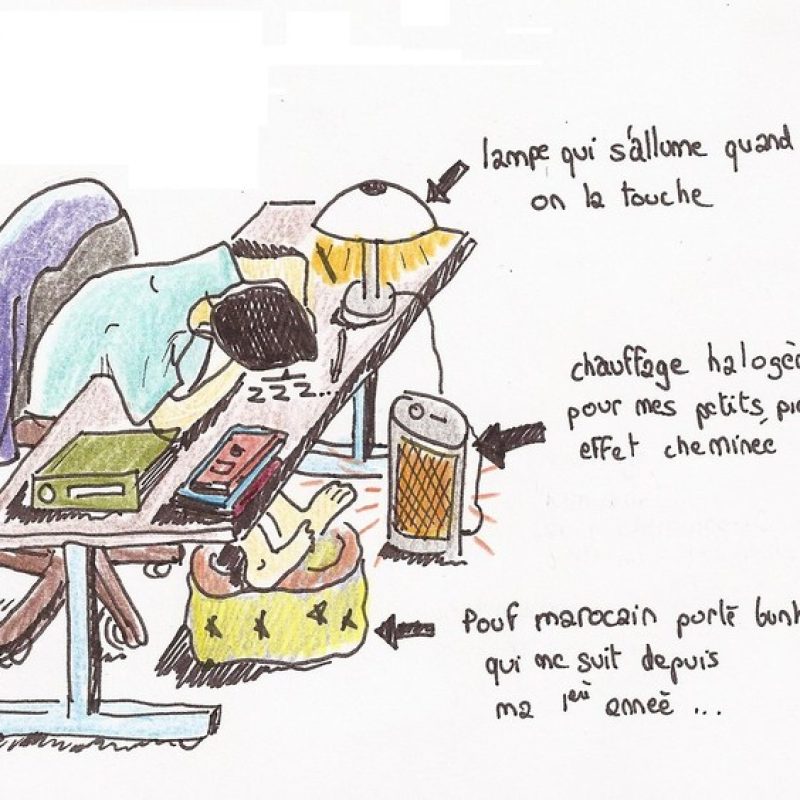 lampe qui s'allume quand
on la touche
zzz...
chauffage halogè
pour mes petits pie
effet cheminée
Pouf marocain porté bonh
qui me suit depuis
ma 1erè année ...